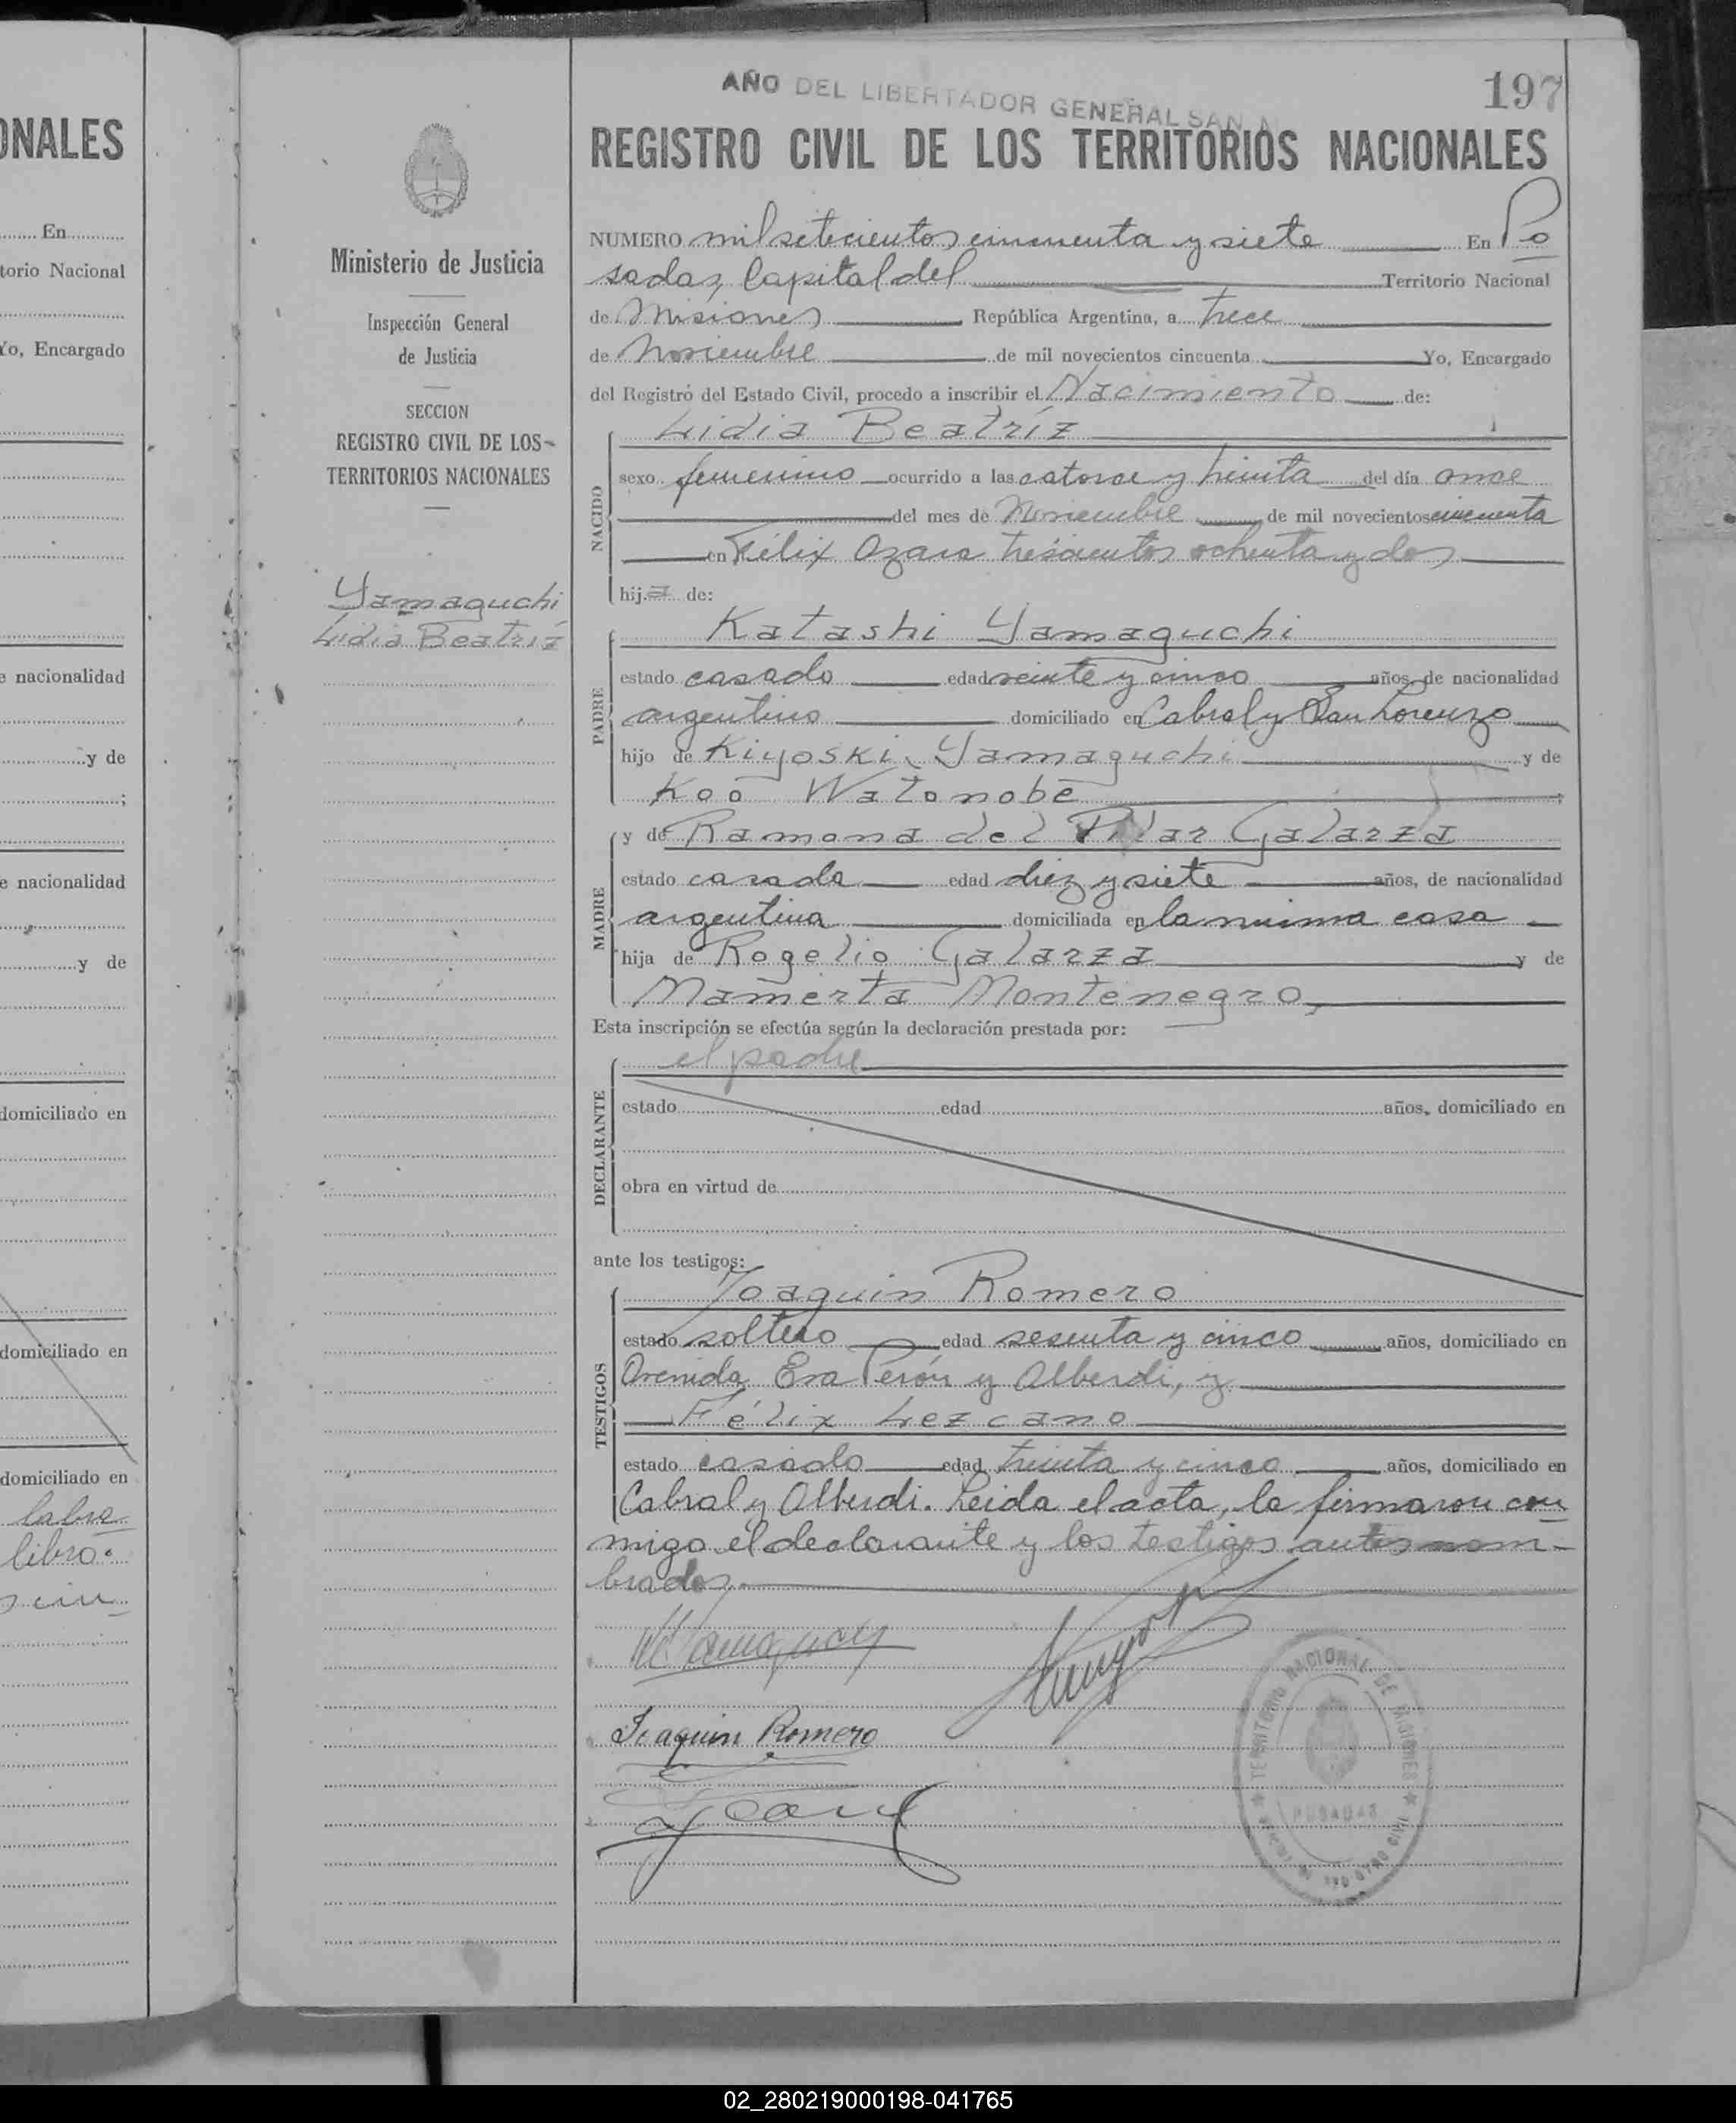 ONALES
En
torio Nacional
Yo, Encargado
e nacionalidad
y de
;
e nacionalidad
y de
domiciliado en
domiciliado en
domiciliado en
labra
libro.
Ministerio de Justicia
Inspección General
de Justicia
SECCION
REGISTRO CIVIL DE LOS
TERRITORIOS NACIONALES
Yamaguchi
Lidia Beatriz
AÑO DEL LIBERTADOR GENERAL SAN
197
REGISTRO CIVIL DE LOS TERRITORIOS NACIONALES
NUMERO mil setecientos cincuenta y siete En Po
sadas, Capital del Territorio Nacional
de Misiones República Argentina, a trece
de Noviembre de mil novecientos cincuenta Yo, Encargado
del Registro del Estado Civil, procedo a inscribir el Nacimiento de:
Lidia Beatríz
NACIDO
sexo femenino ocurrido a las catorce y treinta del día once
del mes de Noviembre de mil novecientos cincuenta
en Félix Azara trescientos ochenta y dos
hija de:
Katashi Yamaguchi
PADRE
estado casado edad veinte y cinco años, de nacionalidad
argentino domiciliado en Cabral y San Lorenzo
hijo de Kiyoski Yamaguchi y de
Koo Watonobe ;
MADRE
y de Ramona del Pilar Galarza
estado casada edad diez y siete años, de nacionalidad
argentina domiciliada en la misma casa
hija de Rogelio Galarza y de
Mamerta Montenegro,
Esta inscripción se efectúa según la declaración prestada por:
el padre
DECLARANTE
estado edad años, domiciliado en
obra en virtud de
ante los testigos:
Joaquin Romero
TESTIGOS
estado soltero edad sesenta y cinco años, domiciliado en
Avenida Eva Perón y Alberdi, y
Félix Lezcano
estado casado edad treinta y cinco años, domiciliado en
Cabral y Alberdi. Leida el acta, la firmaron con
migo el declarante y los testigos antes nom-
brados.
Joaquin Romero
TERRITORIO NACIONAL DE MISIONES
POSADAS
02_280219000198-041765